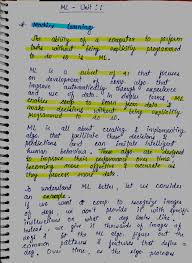 ML - Unit : 1
* Machine Learning
The ability of a computer to perform
tasks without being explicitly programmed
to do so is ML.
ML is a subset of AI that focuses
on development of comp algo that
improve automatically through experience
and use of data. In simpler terms, ML
enables comp to learn from data and
make decisions without being explicitly
programmed to do so.
ML is all about creating & implementing
algo that facilitate these decisions &
predictions and can imitate intelligent
human behaviour. These algo are designed
to improve their performance over time
becoming more effective & accurate as
they process more data.
To understand ML better, let us consider
an example.
If we want a comp to recognize images
of dogs, we don't provide it with specific
instructions on what a dog looks like.
Instead, we give it thousands of images of
dogs & let the ML algo figure out the
common patterns & features that define a
dog. Over time, as the algo process